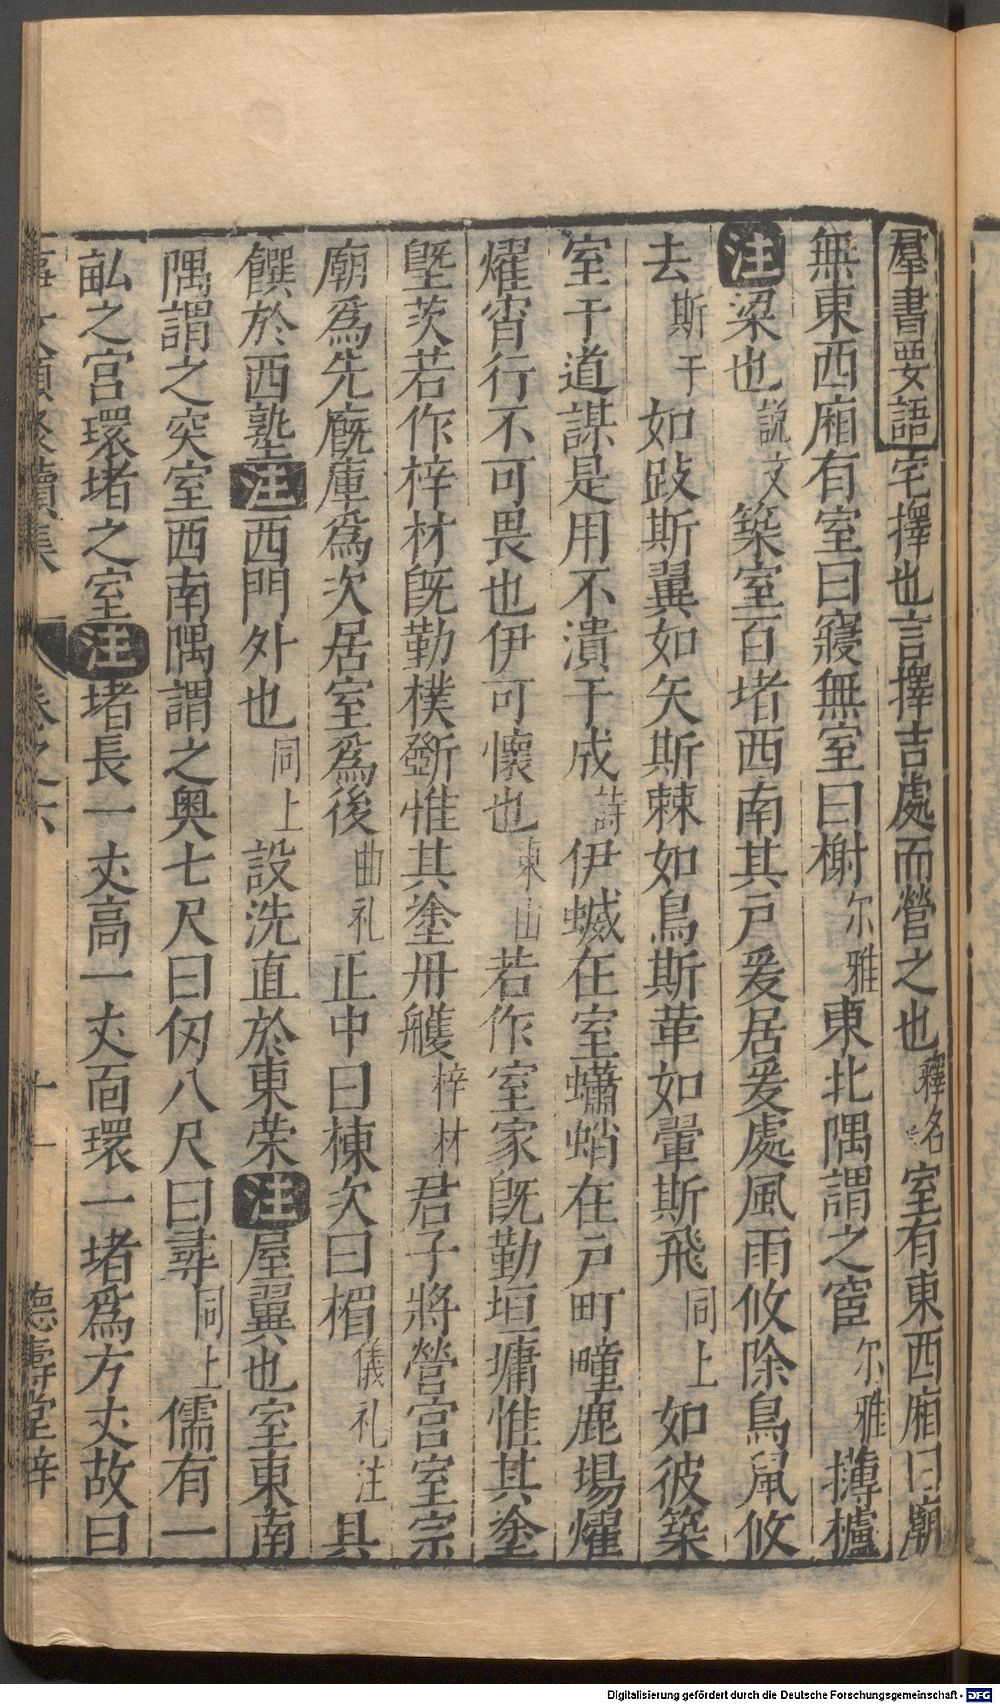 羣書要語宅擇也言擇吉處而營之也釋名室有東西廂曰廟
無東西廂有室曰寢無室曰榭尔雅東北隅謂之宧尔雅欂櫨
注梁也說文築室百堵西南其戸爰居爰處風雨攸除鳥鼠攸
去斯干如跂斯翼如矢斯棘如鳥斯革如翬斯飛同上如彼築
室于道謀是用不潰于成詩伊蝛在室蠨蛸在戸町畽鹿場熠
燿宵行不可畏也伊可懷也東山若作室家旣勤垣墉惟其塗
塈茨若作梓材旣勤樸斵惟其塗丹雘梓材君子將營宫室宗
廟爲先廐庫爲次居室爲後曲礼正中曰棟次曰楣儀礼注具
饌於西塾注西門外也同上設洗直於東荣注屋翼也室東南
隅謂之窔室西南隅謂之奥七尺曰仭八尺曰尋同上儒有一
畆之宫環堵之室注堵長一丈高一丈面環一堵爲方丈故曰
事文類聚續集 卷之六 十一 德壽堂梓
Digitalisierung gefördert durch die Deutsche Forschungsgemeinschaft - DFG